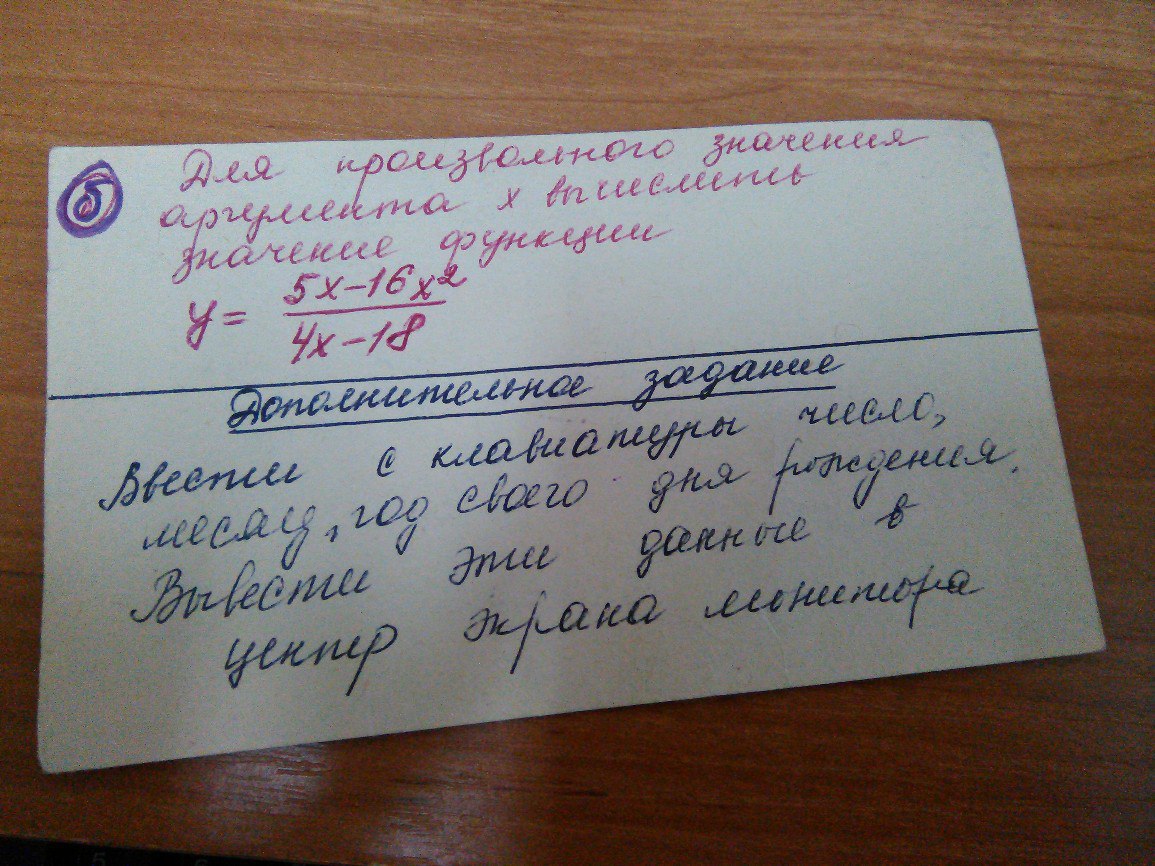 б
Для произвольного значения
аргумента x вычислить
значение функции
y = \frac{5x-16x^2}{4x-18}
Дополнительное задание
Ввести с клавиатуры число,
месяц, год своего дня рождения.
Вывести эти данные в
центр экрана монитора